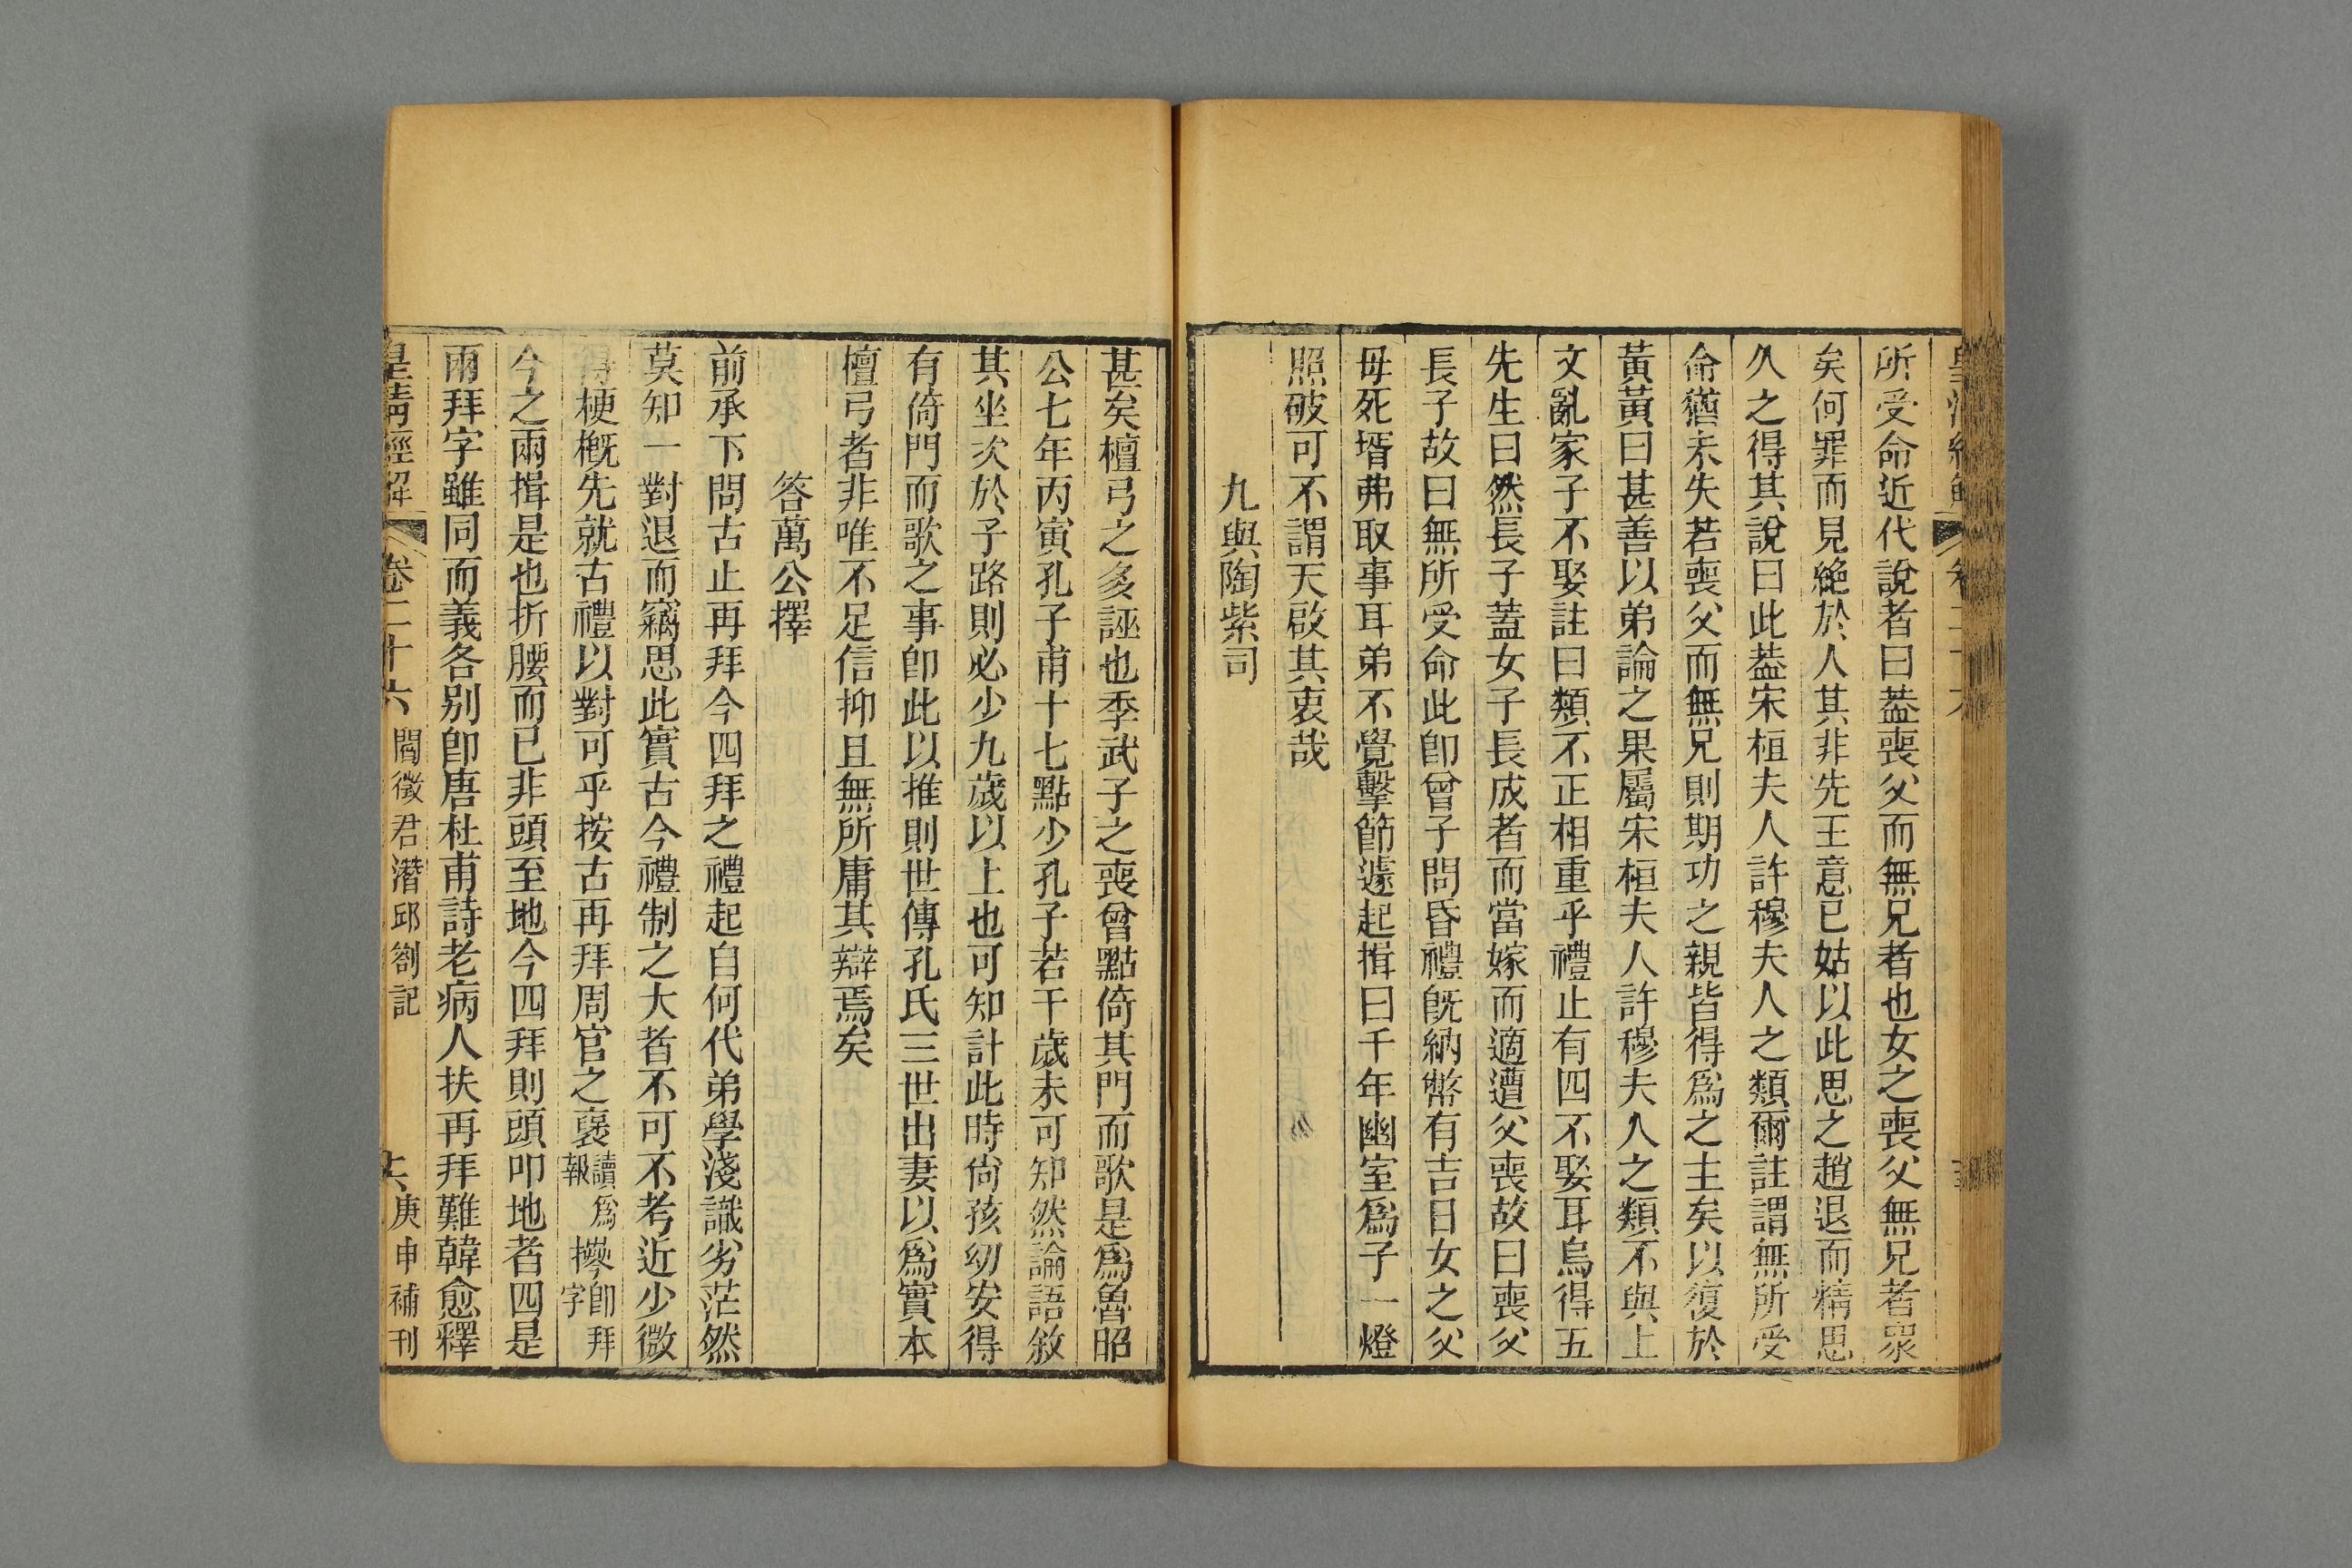 所受命近代說者曰葢喪父而無兄者也女之喪父無兄者衆
矣何罪而見絶於人其非先王意已姑以此思之趙退而精思
久之得其說曰此葢宋桓夫人許穆夫人之類爾註謂無所受
命猶未失若喪父而無兄則期功之親皆得爲之主矣以復於
黃黃曰甚善以弟論之果屬宋桓夫人許穆夫人之類不與上
文亂家子不娶註曰類不正相重乎禮止有四不娶耳烏得五
先生曰然長子蓋女子長成者而當嫁而適遭父喪故曰喪父
長子故曰無所受命此卽曾子問昏禮旣納幣有吉日女之父
母死壻弗取事耳弟不覺擊節遽起揖曰千年幽室爲子一燈
照破可不謂天啟其衷哉
九與陶紫司
甚矣檀弓之多誣也季武子之喪曾點倚其門而歌是爲魯昭
公七年丙寅孔子甫十七點少孔子若干歲未可知然論語敘
其坐次於子路則必少九歲以上也可知計此時尙孩幼安得
有倚門而歌之事卽此以推則世傳孔氏三世出妻以爲實本
檀弓者非唯不足信抑且無所庸其辯焉矣
答萬公擇
前承下問古止再拜今四拜之禮起自何代弟學淺識劣茫然
莫知一對退而竊思此實古今禮制之大者不可不考近少微
得梗槪先就古禮以對可乎按古再拜周官之襃讀爲報𢷎卽拜字
今之兩揖是也折腰而已非頭至地今四拜則頭叩地者四是
兩拜字雖同而義各別卽唐杜甫詩老病人扶再拜難韓愈釋
皇清經解 卷二十六 閻徵君潛邱劄記 六 庚申補刊